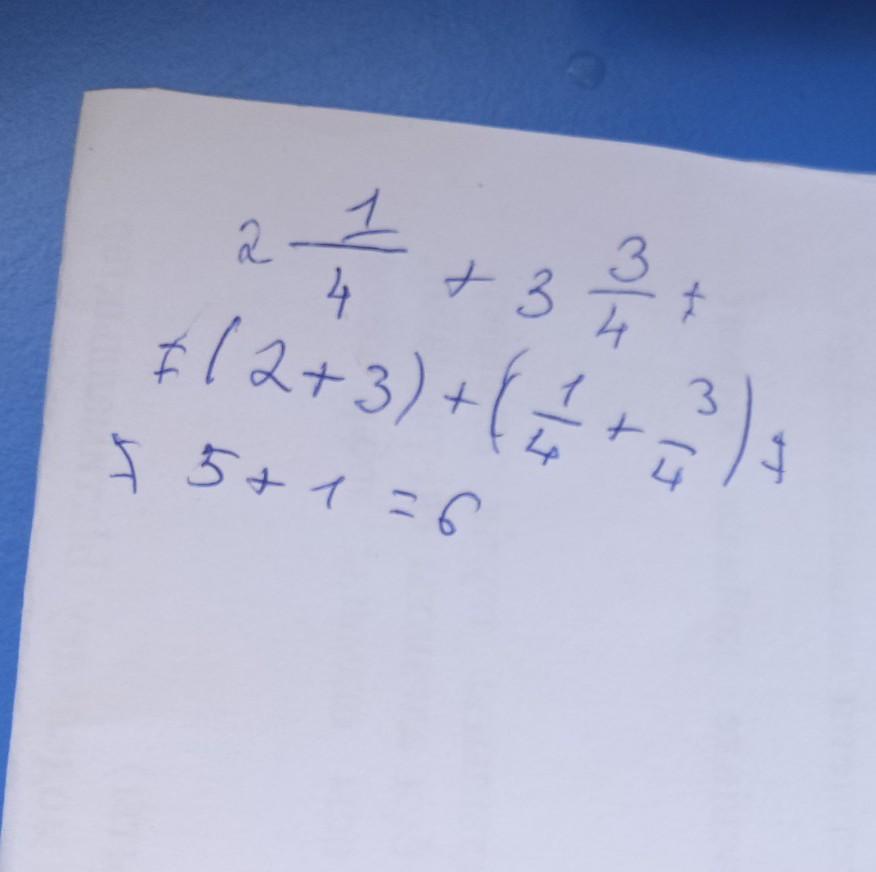 2 1/4 + 3 3/4 =
= (2+3) + (1/4 + 3/4) =
= 5 + 1 = 6